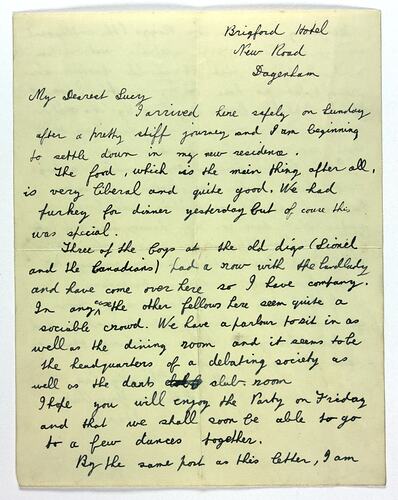 Brigford Hotel
New Road
Dagenham
My Dearest Lucy
I arrived here safely on Sunday
after a pretty stiff journey and I am beginning
to settle down in my new residence.
The food, which is the main thing after all,
is very liberal and quite good. We had
turkey for dinner yesterday but of couse this
was special.
Three of the boys at the old digs (Lionel
and the Canadians) had a row with the landlady
and have come over here so I have company.
In any case the other fellows here seem quite a
sociable crowd. We have a parlour to sit in as
well as the dining room and it seems to be
the headquarters of a debating society as
well as the darts club room
I hope you will enjoy the Party on Friday
and that we shall soon be able to go
to a few dances together.
By the same post as this letter, I am